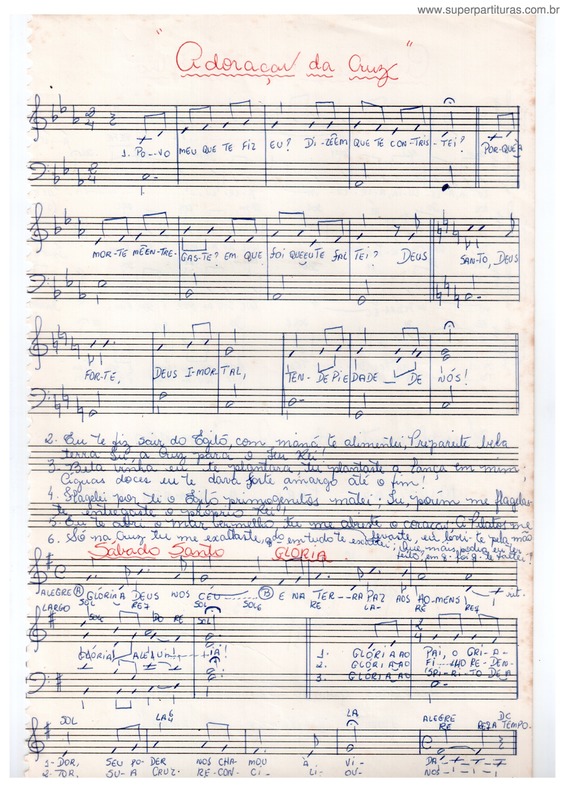 www.superpartituras.com.br
"Adoração da Cruz"
1. PO--VO MEU QUE TE FIZ EU? DI-ZEEM QUE TE CON-TRIS-TEI? POR-QUE A
MOR-TE MEEN-TRE-GAS-TE? EM QUE foi QUEEUTE FAL TEI? DEUS SAN-TO, DEUS
FOR-TE, DEUS I-MOR-TAL, TEN-DE PIEDADE DE NÓS!
2. Eu te fiz sair do Egito, com maná te alimentei, Preparei-te bela
terra tu, a Cruz para o teu Rei!
3. Bela vinha eu te plantara tu plantaste a lança em mim
Águas doces eu te dava foste amargo até o fim!
4. Flagelei por ti o Egito primogênitos matei; Tu, porém me flagelas-
te entregaste o próprio Rei!
5. Eu te abri o mar vermelho, tu me abriste o coração! A Pilatos me
levaste, eu levei-te pela mão
6. Só na Cruz tu me exaltaste, em tudo te exaltei; Que mais podia eu ter
feito, em q. foi q. te faltei!
Sábado Santo GLÓRIA
ALEGRE (A) GLÓRIA A DEUS NOS CÉU (B) E NA TER--RA PAZ AOS HO-MENS! rit.
LARGO SOL RE7 SOL SOL6 RE LA- RE RE7
SOL DO RE SOL
GLÓRIA! ALELUIA!
1. GLÓRIA AO PAI, O CRI-A-
2. GLÓRIA AO FI---LHO RE-DEN-
3. GLÓRIA AO ESPÍRI-TO DE A
SOL LA LA ALEGRE RE RE7 DC A TEMPO.
1-DOR, SEU PO-DER NOS CHA-MOU À VI-DA
2-TOR, SU-A CRUZ RE-CON-CI-LI-OU-NOS